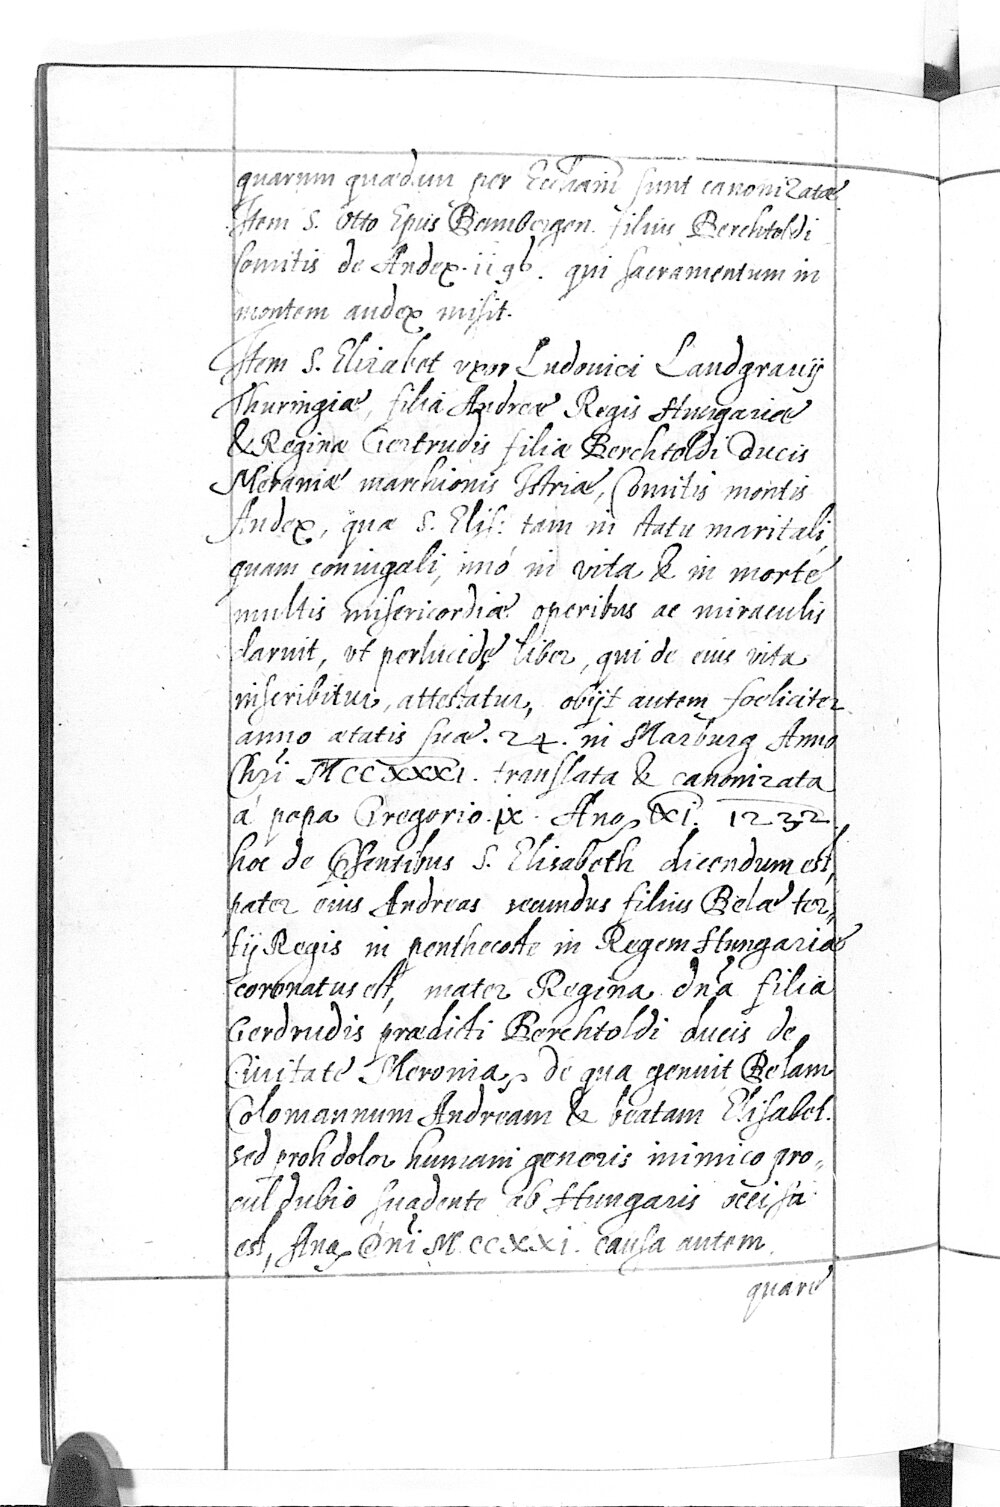 quarum quædam per Eccl̄iam sunt canonizatæ.
Item S. Otto Ep̄us Bambergen. filius Berchtoldi
Comitis de Andex. 1196. qui sacramentum in
montem andex misit.
Item S. Elizabet uxor Ludovici Landgravij
Thuringiæ, filia Andreæ Regis Hungariæ
& Reginæ Gertrudis filiæ Berchtoldi Ducis
Meraniæ marchionis Istriæ, Comitis montis
Andex, quæ S. Elis: tam in statu maritali,
quam coniugali, imò in vita & in morte
multis misericordiæ operibus ac miraculis
claruit, ut perlucide liber, qui de eius vita
inscribitur, attestatur, obijt autem foeliciter
anno ætatis suæ. 24. in Marburg Anno
Chr̄i MCCXXXI. translata & canonizata
à papa Gregorio. ix. Ano XI. 1232.
hoc de p̄sentibus S. Elisabeth dicendum est,
pater eius Andreas secundus filius Belæ ter„
tij Regis in penthecoste in Regem Hungariæ
coronatus est, mater Regina dn̄a filia
Gerdrudis prædicti Berchtoldi ducis de
Civitate Meronia, de qua genuit Belam
Colomannum Andream & beatam Elisabet.
sed proh dolor humani generis inimico pro„
cul dubio suadente ab Hungaris occisa
est, Ano Dn̄i M.CCXXI. causa autem
quare